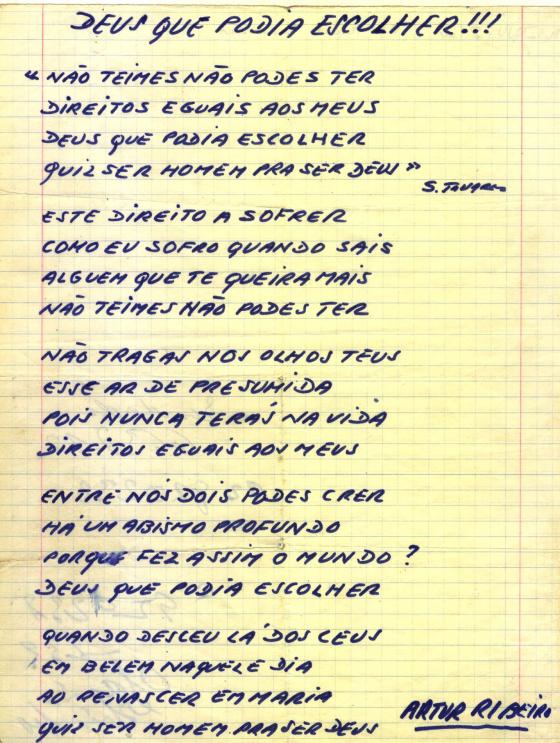 DEUS QUE PODIA ESCOLHER!!!
"NÃO TEIMES NÃO PODES TER
DIREITOS EGUAIS AOS MEUS
DEUS QUE PODIA ESCOLHER
QUIZ SER HOMEM PRA SER DEUS"
S. TAVARES
ESTE DIREITO A SOFRER
COMO EU SOFRO QUANDO SAIS
ALGUEM QUE TE QUEIRA MAIS
NÃO TEIMES NÃO PODES TER
NÃO TRAGAS NOS OLHOS TEUS
ESSE AR DE PRESUMIDA
POIS NUNCA TERÁS NA VIDA
DIREITOS EGUAIS AOS MEUS
ENTRE NÓS DOIS PODES CRER
HÁ UM ABISMO PROFUNDO
PORQUE FEZ ASSIM O MUNDO?
DEUS QUE PODIA ESCOLHER
QUANDO DESCEU LÁ DOS CEUS
EM BELEM NAQUELE DIA
AO RENASCER EM MARIA
QUIZ SER HOMEM PRA SER DEUS
ARTUR RIBEIRO